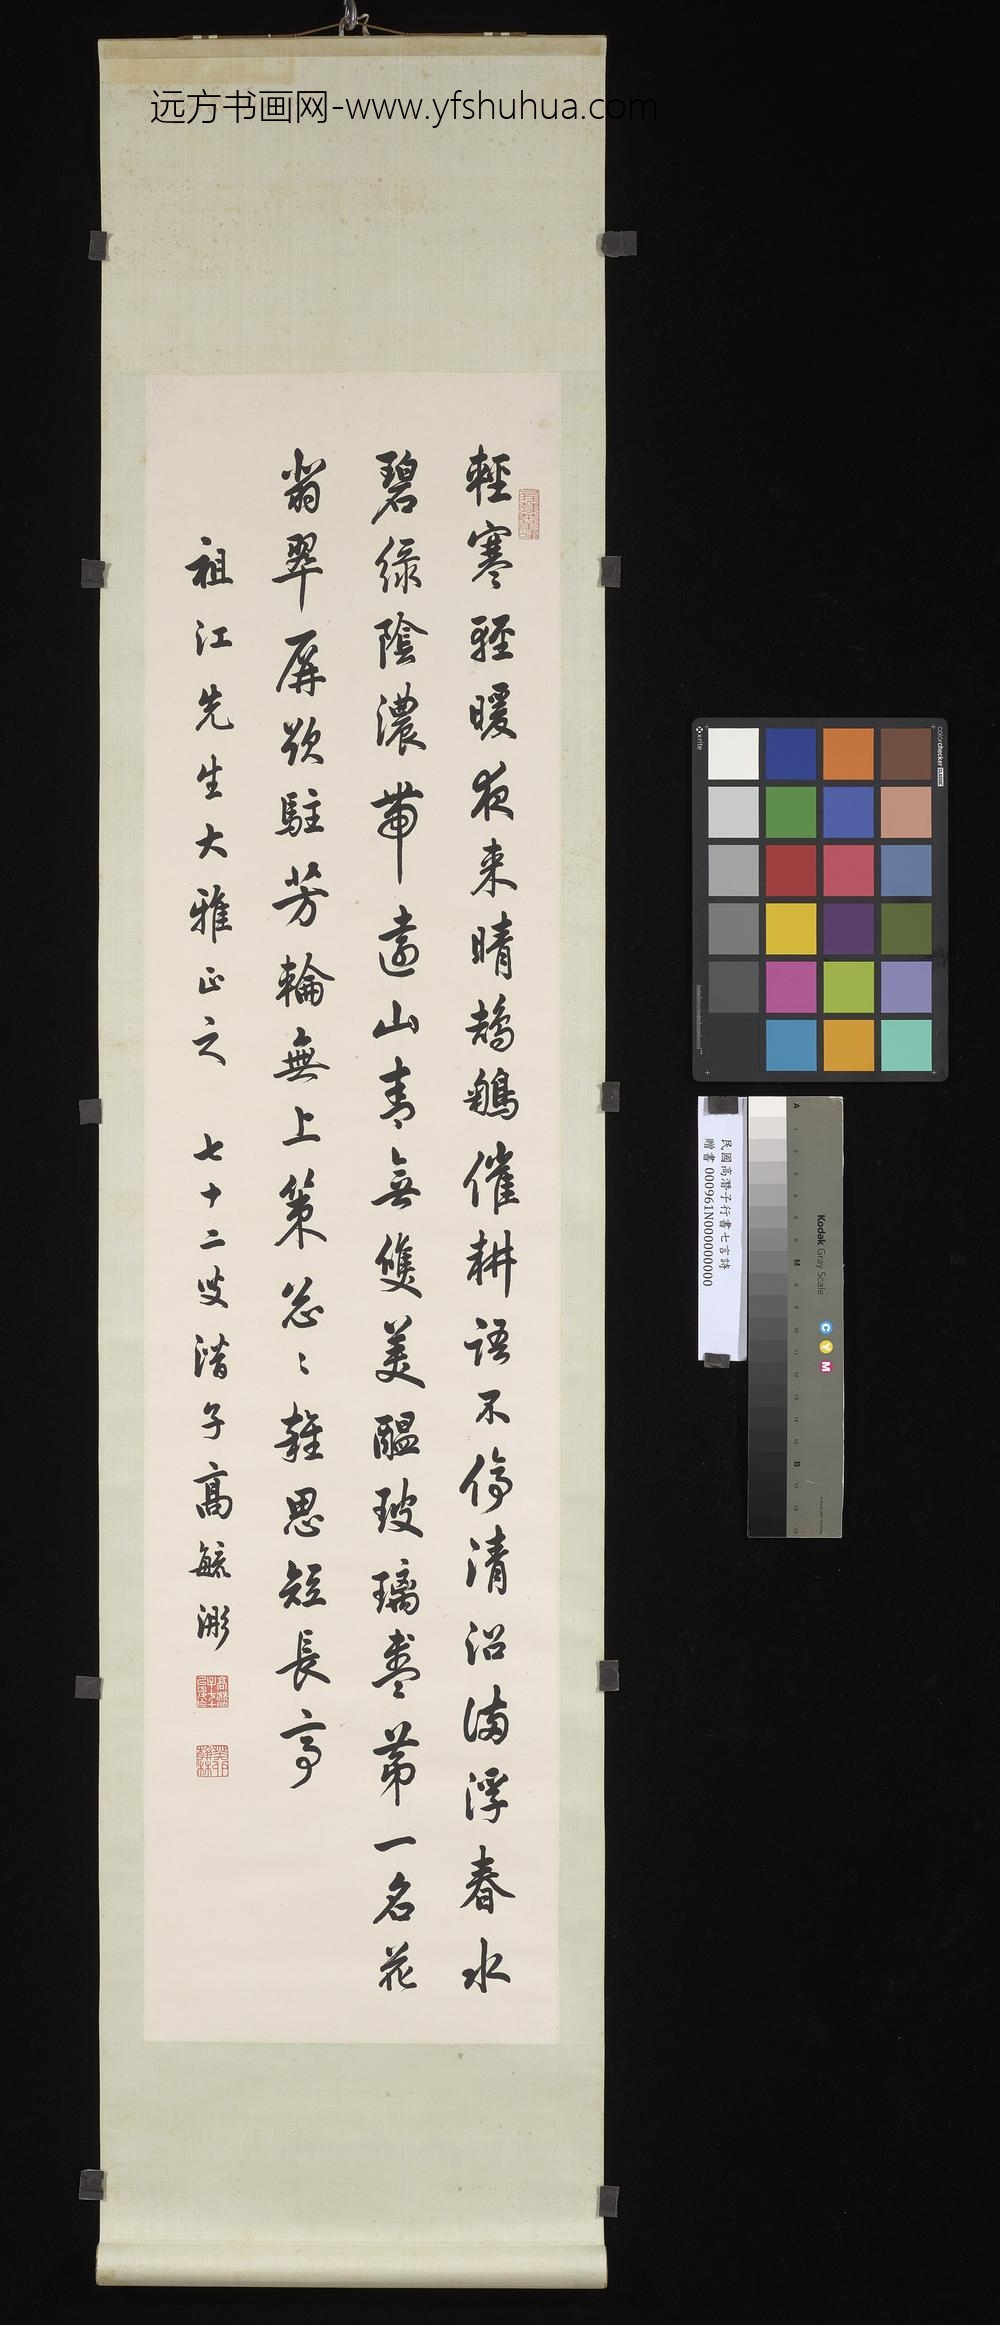 远方书画网-www.yfshuhua.com
輕寒輕暖夜来晴鵓鴣催耕語不停清沼滿浮春水
碧綠陰濃帶遠山青無雙美醞玻璃盞第一名花
翡翠屏欲駐芳輪無上策忽〻離思短長亭
祖江先生大雅正之 七十二叟潛子高毓浵
民國高潛子行書七言詩
贈書 000961N000000000
x-rite
colorchecker CLASSIC
Kodak Gray Scale
C
Y
M
A
M
B